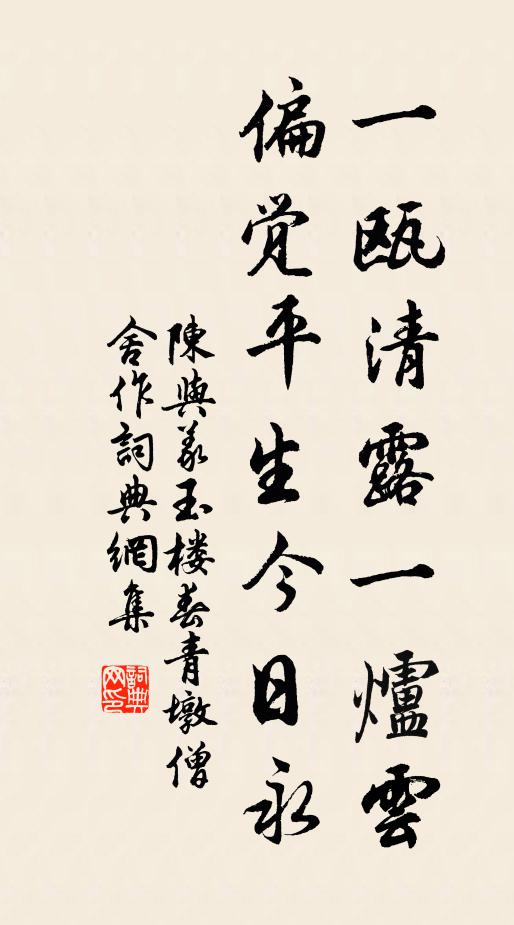 一甌清露一爐雲
偏觉平生今日永
陳與義玉楼春青墩僧
舍作詞典網集
詞典网印